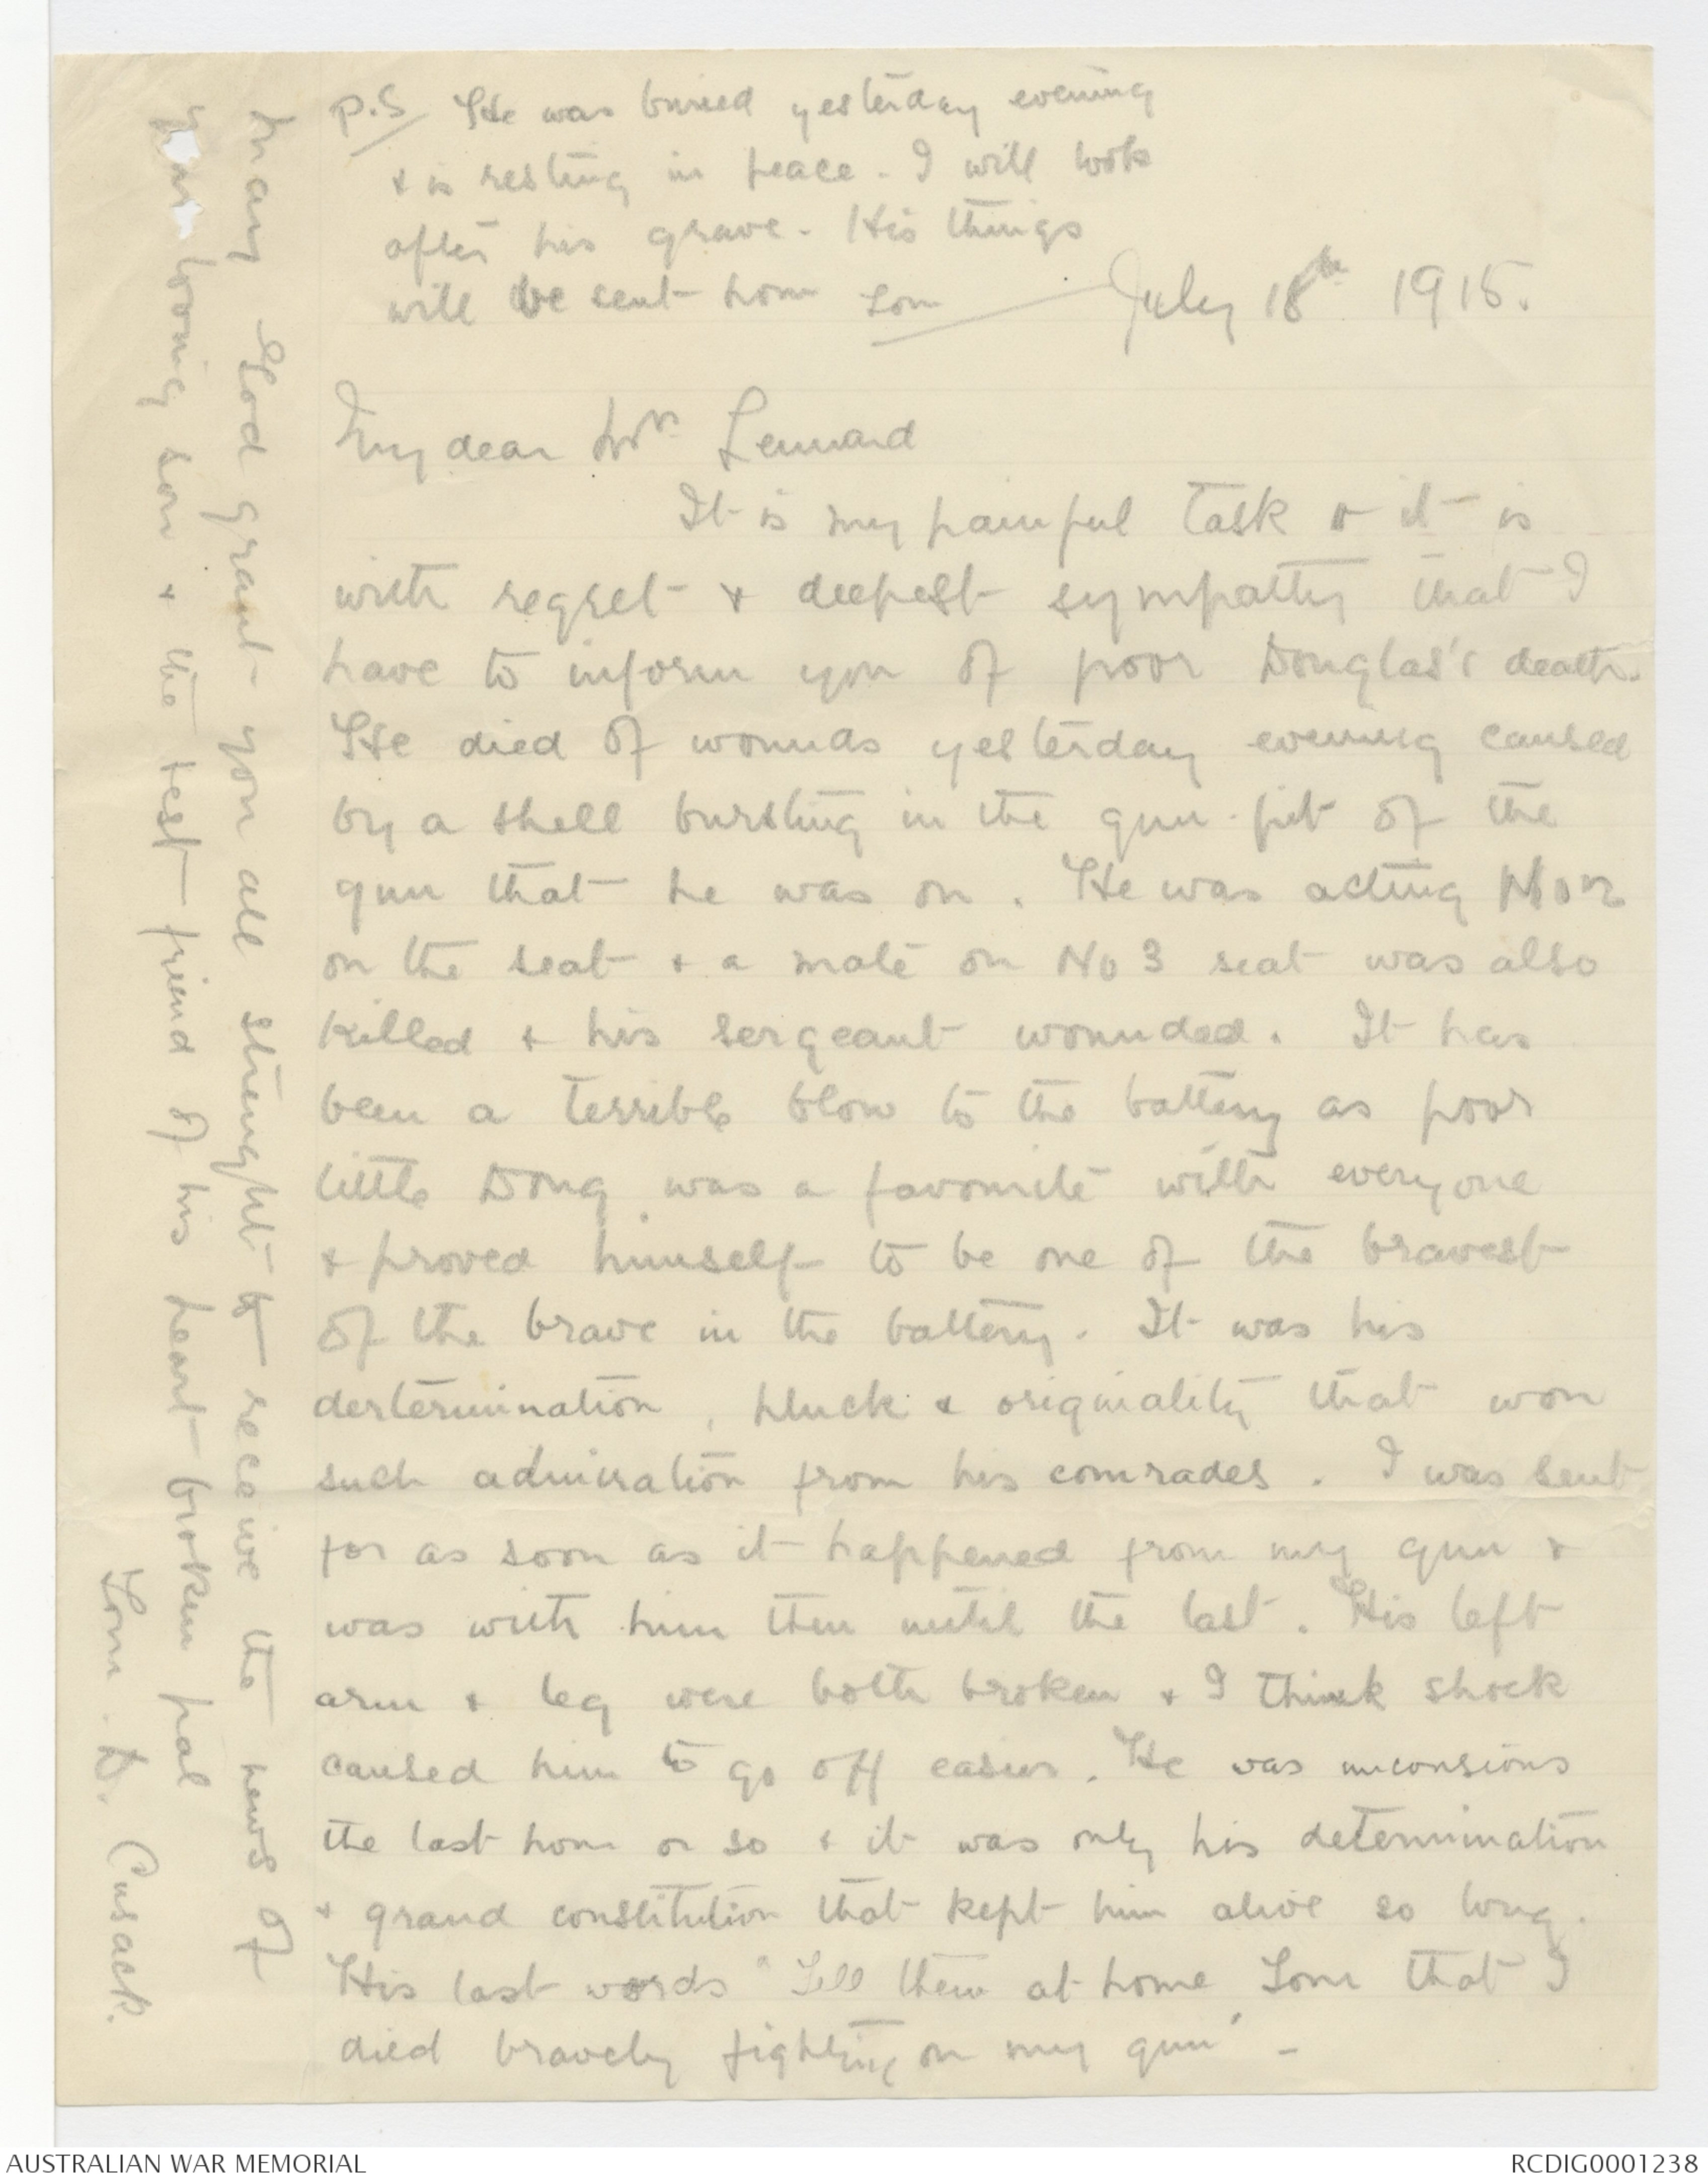 P.S He was buried yesterday evening
& is resting in peace. I will look
after his grave. His things
will be sent home Lom
July 18th 1915.
My dear Mrs Lennard
It is my painful task & it is
with regret & deepest sympathy that I
have to inform you of poor Douglas's death.
He died of wounds yesterday evening caused
by a shell bursting in the gun-pit of the
gun that he was on. He was acting No 2
on the seat & a mate on No 3 seat was also
killed & his sergeant wounded. It has
been a terrible blow to the battery as poor
little Doug was a favourite with everyone
& proved himself to be one of the bravest
of the brave in the battery. It was his
dertermination, pluck & originality that won
such admiration from his comrades. I was sent
for as soon as it happened from my gun &
was with him then until the last. His left
arm & leg were both broken & I think shock
caused him to go off easier. He was unconsious
the last hour or so & it was only his determination
& grand constitution that kept him alive so long.
His last words "Tell them at home Lom that I
died bravely fighting on my gun" -
May God grant you all strenght to receive the news of
your loving son & the best friend of his heart broken pal
Lom. D. Cusack.
AUSTRALIAN WAR MEMORIAL
RCDIG0001238